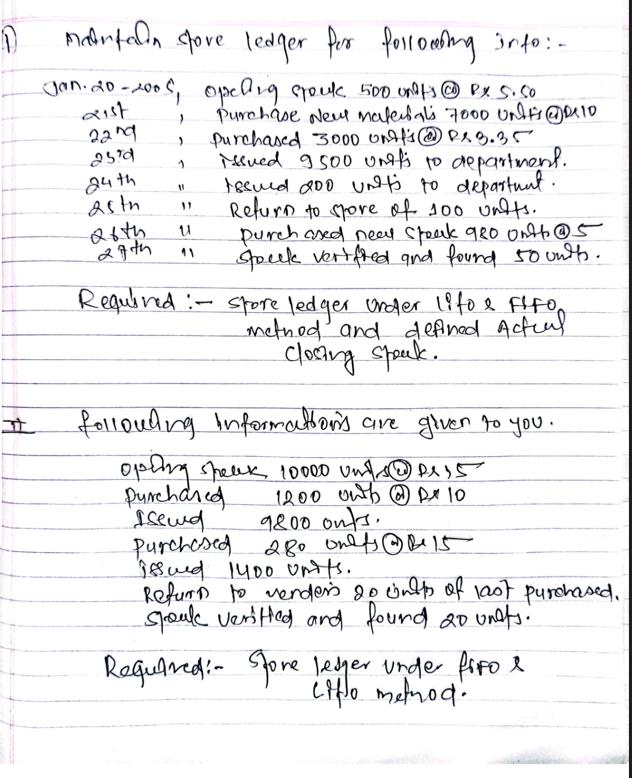 1) Maintain store ledger for following info:-
Jan. 20-2005, Opening stock 500 units @ Rs 5.50
21st , Purchase new materials 7000 units @ Rs 10
22nd , Purchased 3000 units @ Rs 3.35
23rd , issued 9500 units to department.
24th " Issued 200 units to department.
25th " Return to store of 100 units.
26th " Purchased new stock 980 units @ 5
27th " Stock verified and found 50 units.
Required :- Store ledger under lifo & FIFO
method and defined Actual
closing stock.
II following informations are given to you.
opening stock 10000 units @ Rs 15
Purchased 1200 units @ Rs 10
Issued 9800 units.
Purchased 280 units @ Rs 15
issued 1400 units.
Return to vendors 20 units of last purchased.
Stock verified and found 20 units.
Required:- Store ledger under fifo &
Lifo method.